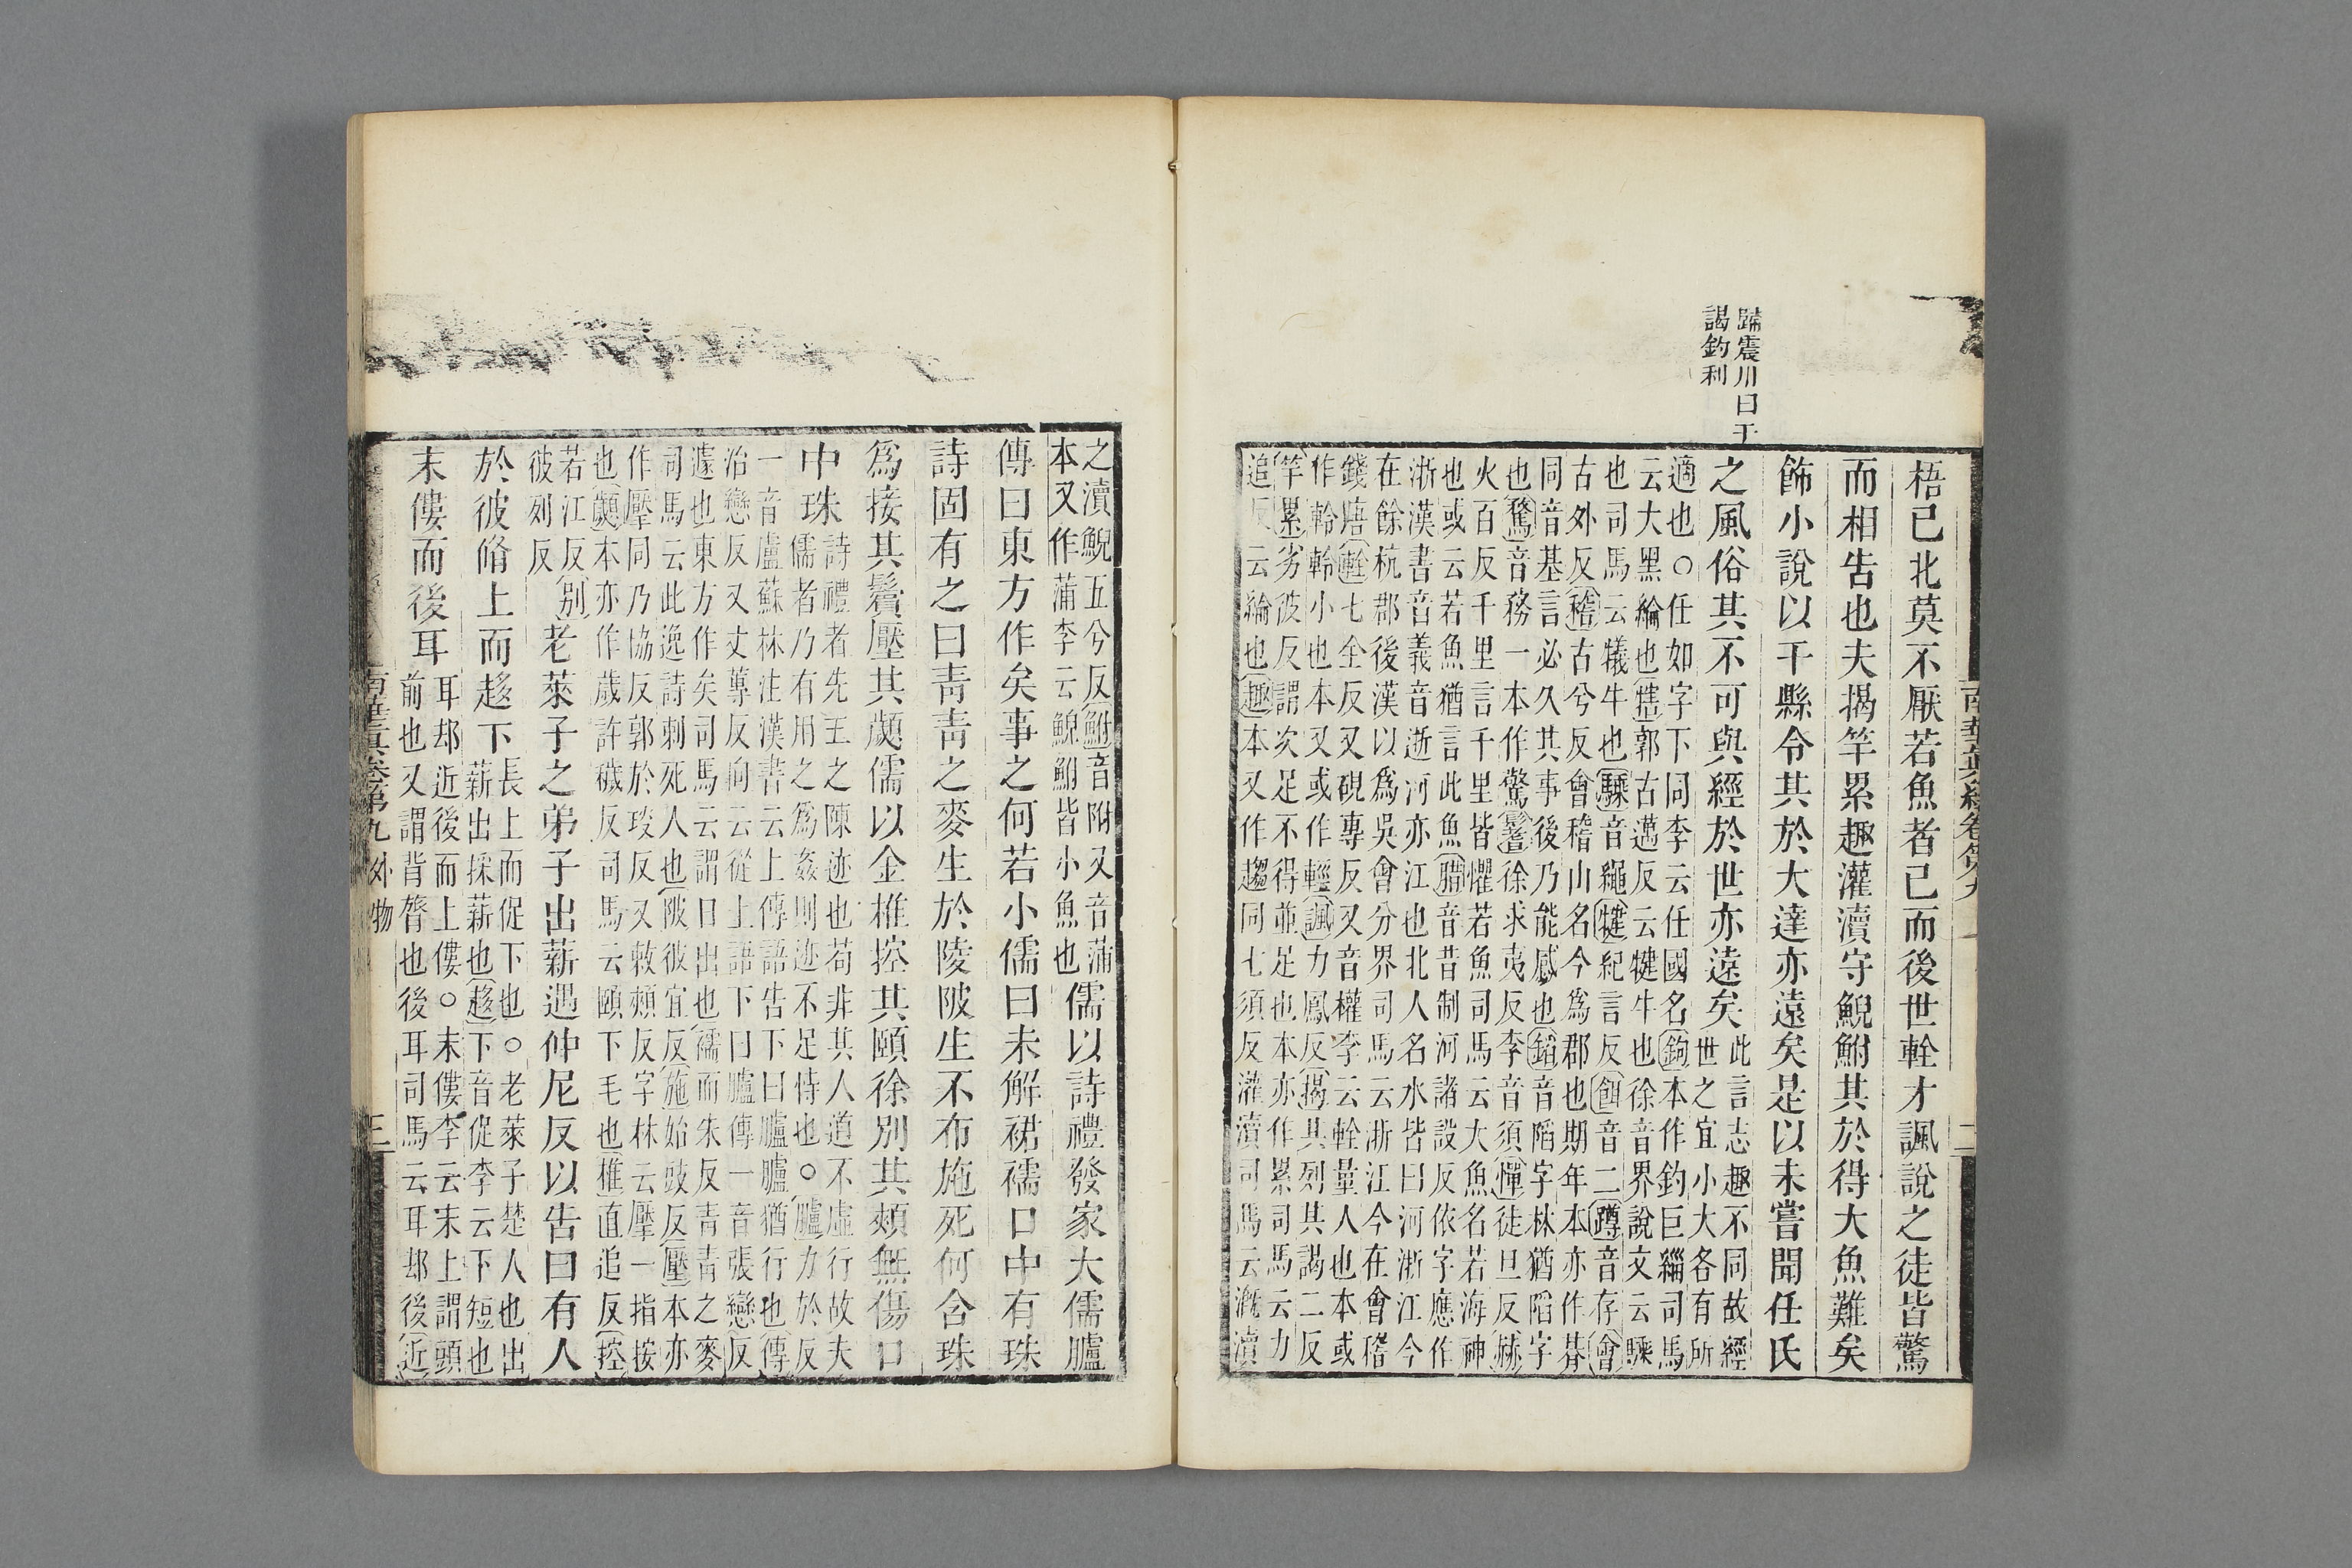 歸震川曰干
謁釣利
梧已北莫不厭若魚者已而後世輇才諷說之徒皆驚
而相告也夫揭竿累趣灌瀆守鯢鮒其於得大魚難矣
飾小說以干縣令其於大達亦遠矣是以未嘗聞任氏
之風俗其不可與經於世亦遠矣
此言志趣不同故經
世之宜小大各有所
適也○任如字下同李云任國名鉤本作釣巨緇司馬
云大黑綸也犗郭古邁反云犍牛也徐音界說文云騬
也司馬云犠牛也騬音繩犍紀言反餌音二蹲音存會
古外反稽古兮反會稽山名今為郡也期年本亦作朞
同音基言必久其事後乃能感也錎音陷字林猶陷字
也騖音務一本作驚鬐徐求夷反李音須憚徒旦反赫
火百反千里言千里皆懼若魚司馬云大魚名若海神
也或云若魚猶言此魚腊音昔制河諸設反依字應作
浙漢書音義音逝河亦江也北人名水皆曰河浙江今
在餘杭郡後漢以為吳會分界司馬云浙江今在會稽
錢塘輇七全反又硯專反又音權李云輇量人也本或
作軨軨小也本又或作輕諷力鳳反揭其列其謁二反
竿累劣彼反謂次足不得並足也本亦作纍司馬云力
追反云綸也趣本又作趨同七須反灌瀆司馬云溉瀆
南華真經卷第九
二
之瀆鯢五兮反鮒音附又音蒲
本又作蒲李云鯢鮒皆小魚也
儒以詩禮發冢大儒臚
傳曰東方作矣事之何若小儒曰未解裙襦口中有珠
詩固有之曰靑靑之麥生於陵陂生不布施死何含珠
爲接其鬢壓其顪儒以金椎控其頤徐別其頰無傷口
中珠
詩禮者先王之陳迹也苟非其人道不虛行故夫
儒者乃有用之為姦則迹不足恃也○臚力於反
一音盧蘇林注漢書云上傳語告下曰臚臚猶行也傳
治戀反又丈蓴反向云從上語下曰臚傳一音張戀反
遽也東方作矣司馬云謂日出也襦而朱反青青之麥
司馬云此逸詩刺死人也陂彼宜反施始豉反壓本亦
作擪同乃協反郭於琰反又敕頰反字林云擪一指按
也顪本亦作歲許穢反司馬云頤下毛也椎直追反控
若江反別
彼列反
老萊子之弟子出薪遇仲尼反以告曰有人
於彼脩上而趍下
長上而促下也○老萊子楚人也出
薪出採薪也趍下音促李云下短也
末僂而後耳
耳却近後而上僂○末僂李云末上謂頭
前也又謂背膂也後耳司馬云耳却後近
南華真卷第九 外物
三